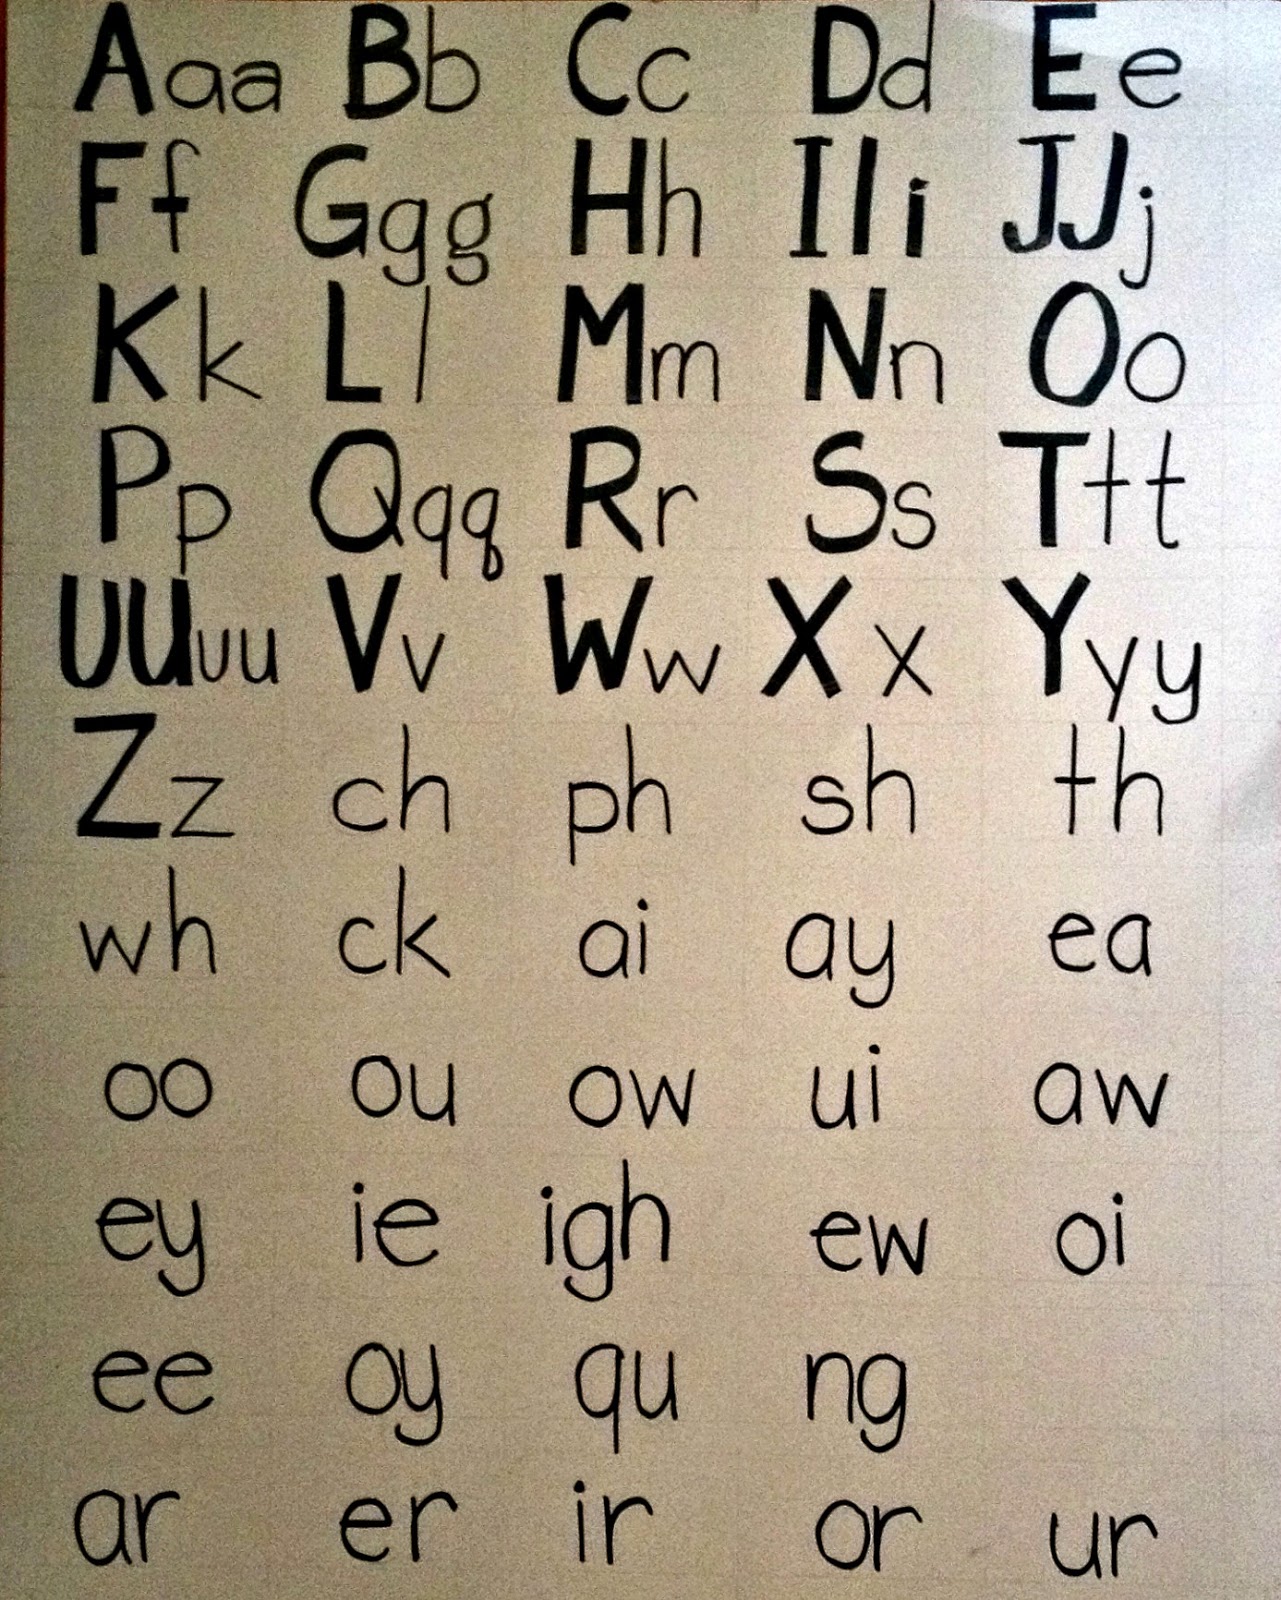 Aaa Bb Cc Dd Ee
Ff Ggg Hh IIi JJj
Kk Ll Mm Nn Oo
Pp Qqq Rr Ss Ttt
UUuu Vv Ww Xx Yyy
Zz ch ph sh th
wh ck ai ay ea
oo ou ow ui aw
ey ie igh ew oi
ee oy qu ng
ar er ir or ur